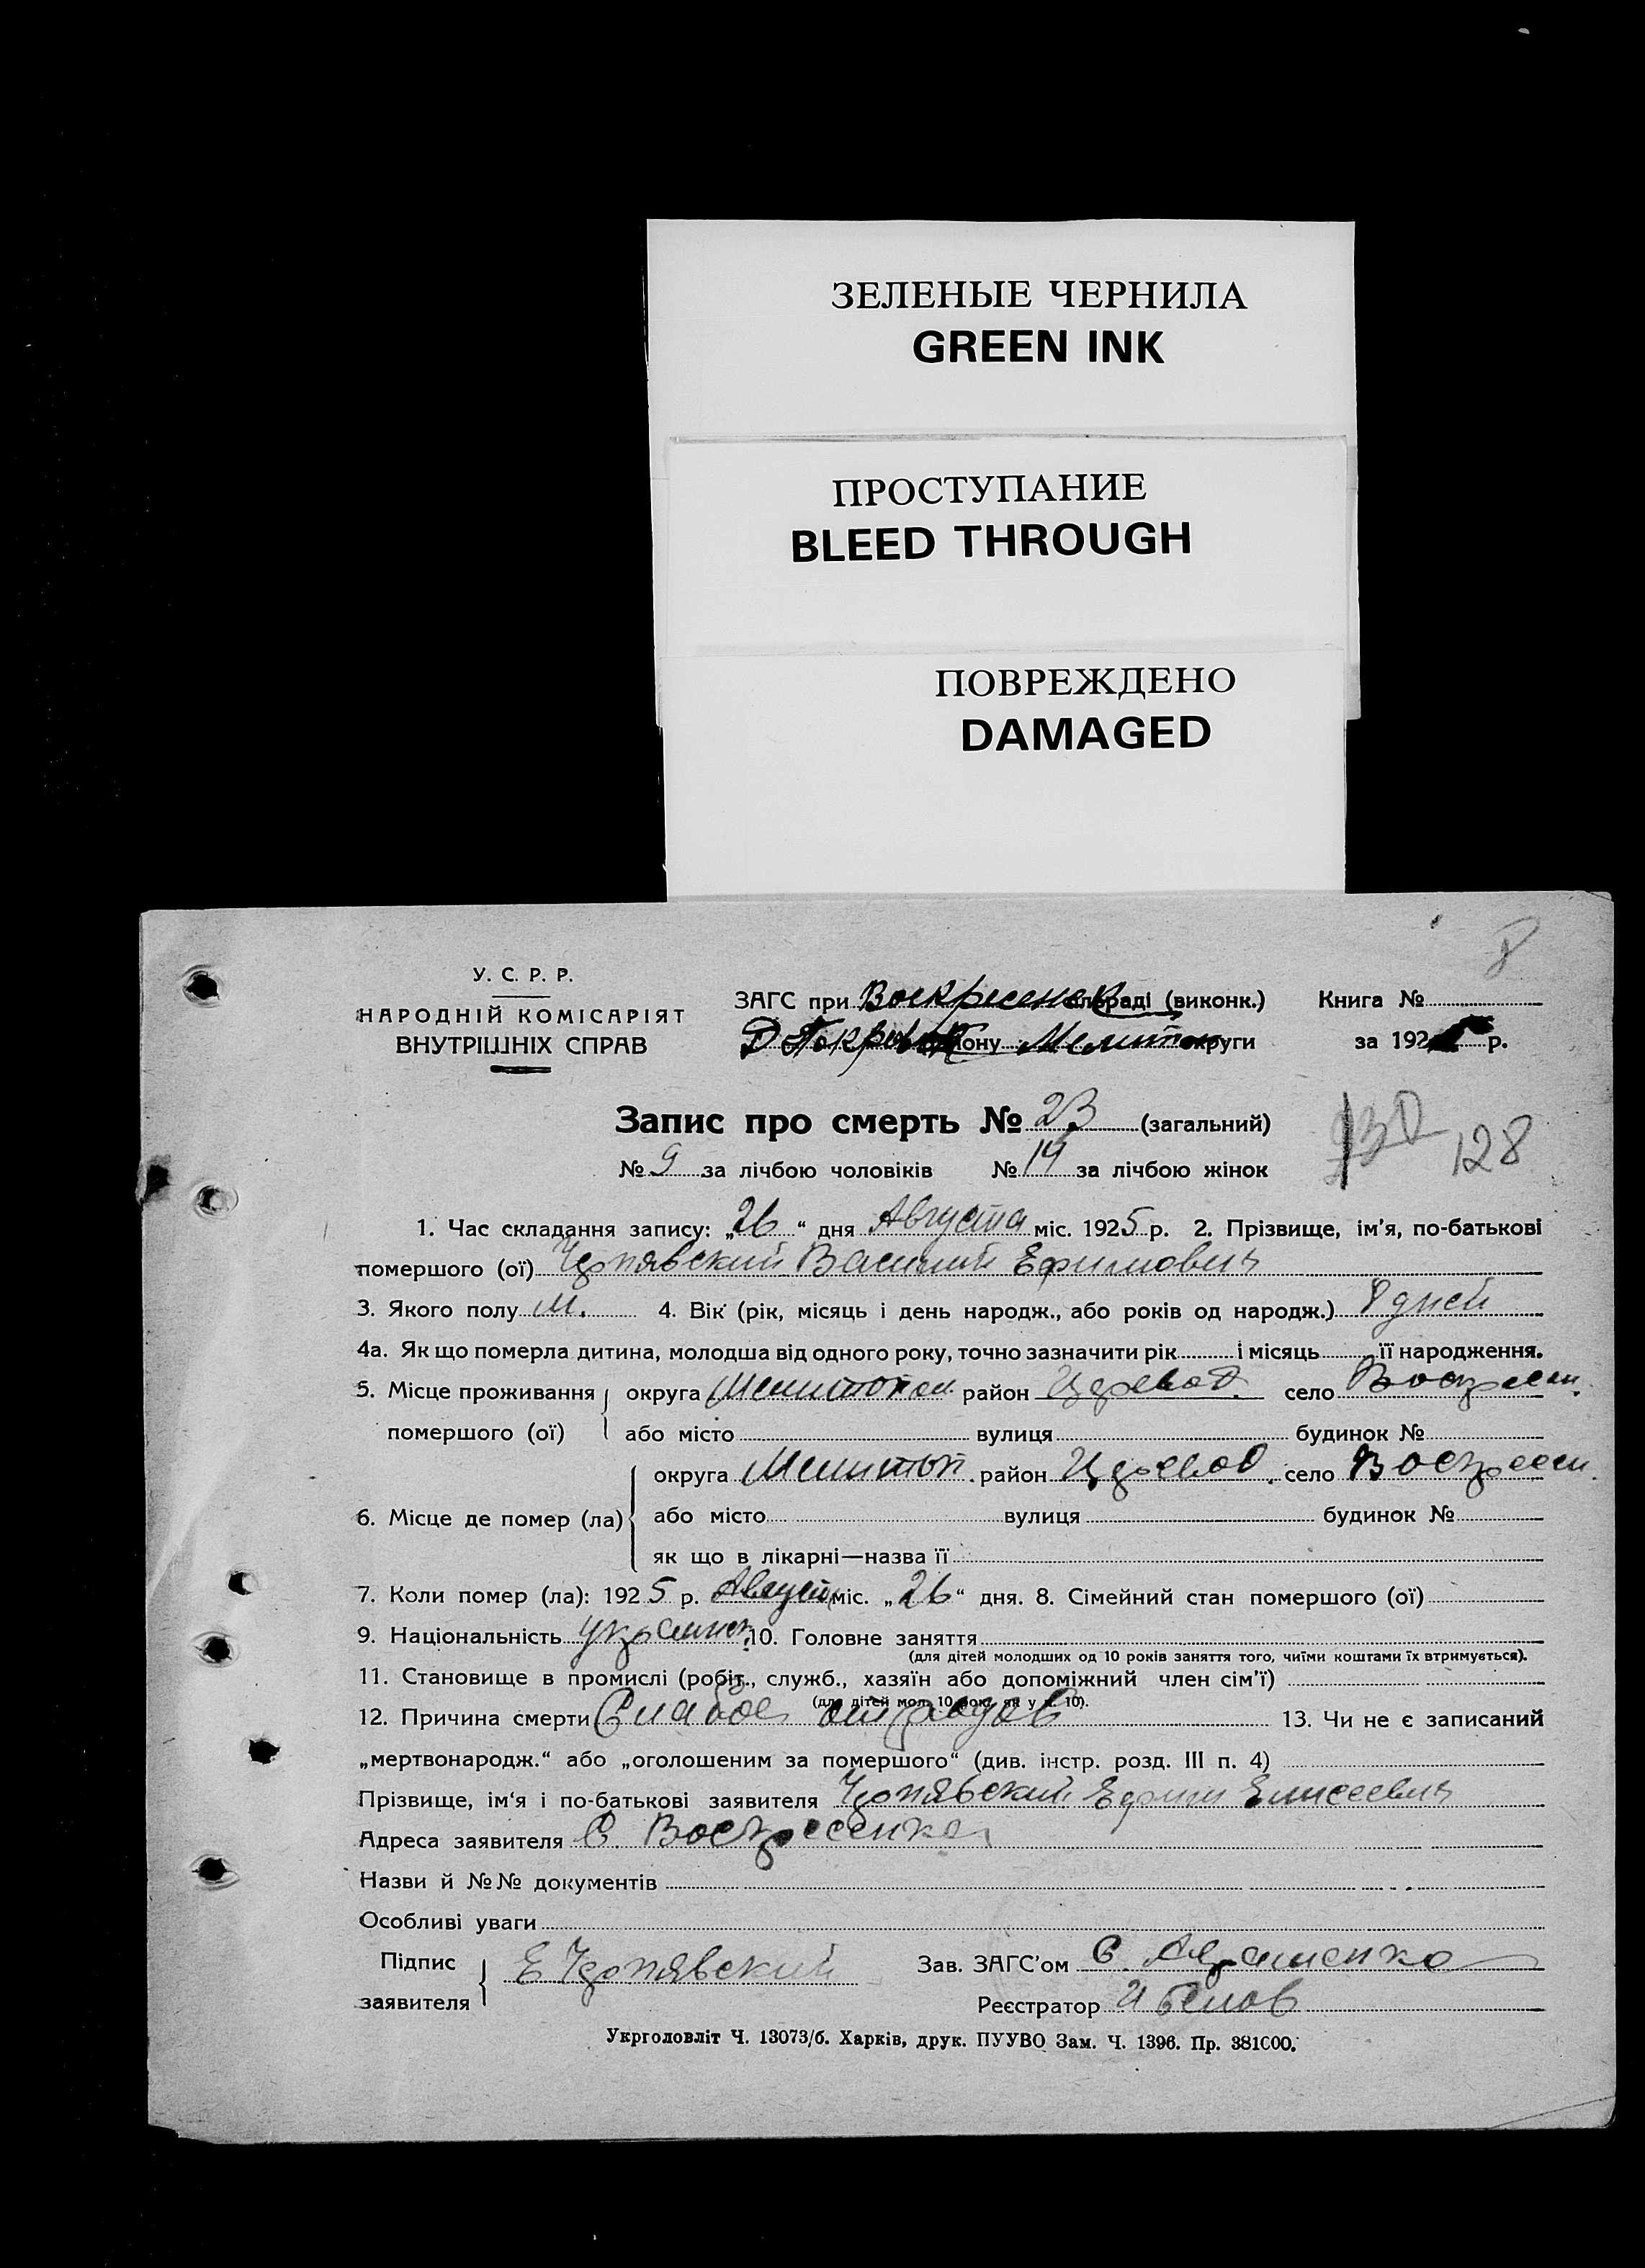 ЗЕЛЕНЫЕ ЧЕРНИЛА
GREEN INK
ПРОСТУПАНИЕ
BLEED THROUGH
ПОВРЕЖДЕНО
DAMAGED
У. С. Р. Р.
НАРОДНІЙ КОМІСАРІЯТ
ВНУТРІШНІХ СПРАВ
ЗАГС при Воскресенск сільраді (виконк.) Книга №
району Мелитоп округи за 192 р.
Запис про смерть № 23 (загальний)
№ 9 за лічбою чоловіків № 14 за лічбою жінок
128
1. Час складання запису: „26“ дня Августа міс. 1925 р. 2. Прізвище, ім'я, по-батькові
помершого (ої) Василий Ефимович
3. Якого полу М. 4. Вік (рік, місяць і день народж., або років од народж.) 8 дней
4а. Як що померла дитина, молодша від одного року, точно зазначити рік і місяць її народження.
5. Місце проживання округа Мелитопол район село Воскресен.
помершого (ої) або місто вулиця будинок №
округа Мелитоп. район село Воскресен.
6. Місце де помер (ла) або місто вулиця будинок №
як що в лікарні—назва її
7. Коли помер (ла): 1925 р. Август міс. „26“ дня. 8. Сімейний стан помершого (ої)
9. Національність украинец 10. Головне заняття
(для дітей молодших од 10 років заняття того, чиїми коштами їх втримується).
11. Становище в промислі (робіт., служб., хазяїн або допоміжний член сім'ї)
(для дітей мол. 10 рокі, як у п. 10).
12. Причина смерти 13. Чи не є записаний
„мертвонародж.“ або „оголошеним за помершого“ (див. інстр. розд. III п. 4)
Прізвище, ім'я і по-батькові заявителя Ефим Елисеевич
Адреса заявителя С. Воскресенка
Назви й №№ документів
Особливі уваги
Підпис Е Зав. ЗАГС'ом
заявителя Реєстратор И Белов
Укрголовліт Ч. 13073/б. Харків, друк. ПУУВО Зам. Ч. 1396. Пр. 381000.